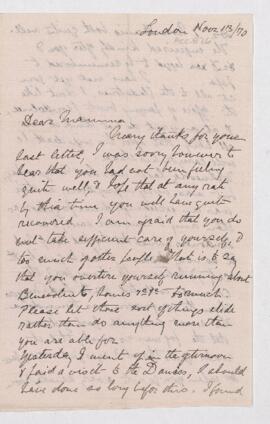 London Nov 13/70
Dear Mamma
Many thanks for your
last letter, I was sorry however to
hear that you had not been feeling
quite well, & hope that at any rate
by this time you will have quite
recovered. I am afraid that you do
not take sufficient care of yourself, &
too much of other people. That is to say
that you overtire yourself running about
too much.
Please let those sort of things slide
rather than do anything more than
you are able for.
Yesterday I went off in the afternoon
& paid a visit to the I should
have done so long before this. I found